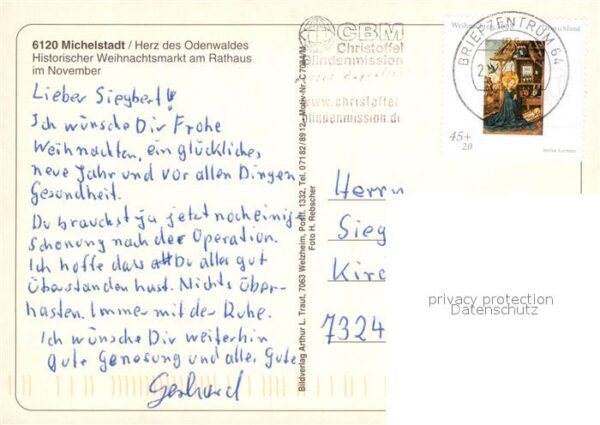 6120 Michelstadt / Herz des Odenwaldes
Historischer Weihnachtsmarkt am Rathaus
im November
Lieber Siegbert!
Ich wünsche Dir Frohe
Weihnachten, ein glückliches
neue Jahr und vor allen Dingen
Gesundheit.
Du brauchst ja jetzt noch einige
Schonung nach der Operation.
Ich hoffe dass Du alles gut
überstanden hast. Nichts über-
hasten. Immer mit der Ruhe.
Ich wünsche Dir weiterhin
gute Genesung und alles Gute
Gerhard
Bildverlag Arthur L. Traut, 7063 Welzheim, Postf. 1332, Tel. 07182/8912 - Motiv-Nr. C 7084/M
Foto H. Rebscher
CBM
Christoffel
Blindenmission
www.christoffel
blindenmission.de
BRIEFZENTRUM 64
45+
20
Herrn
Sieg
Kirc
7324
privacy protection
Datenschutz